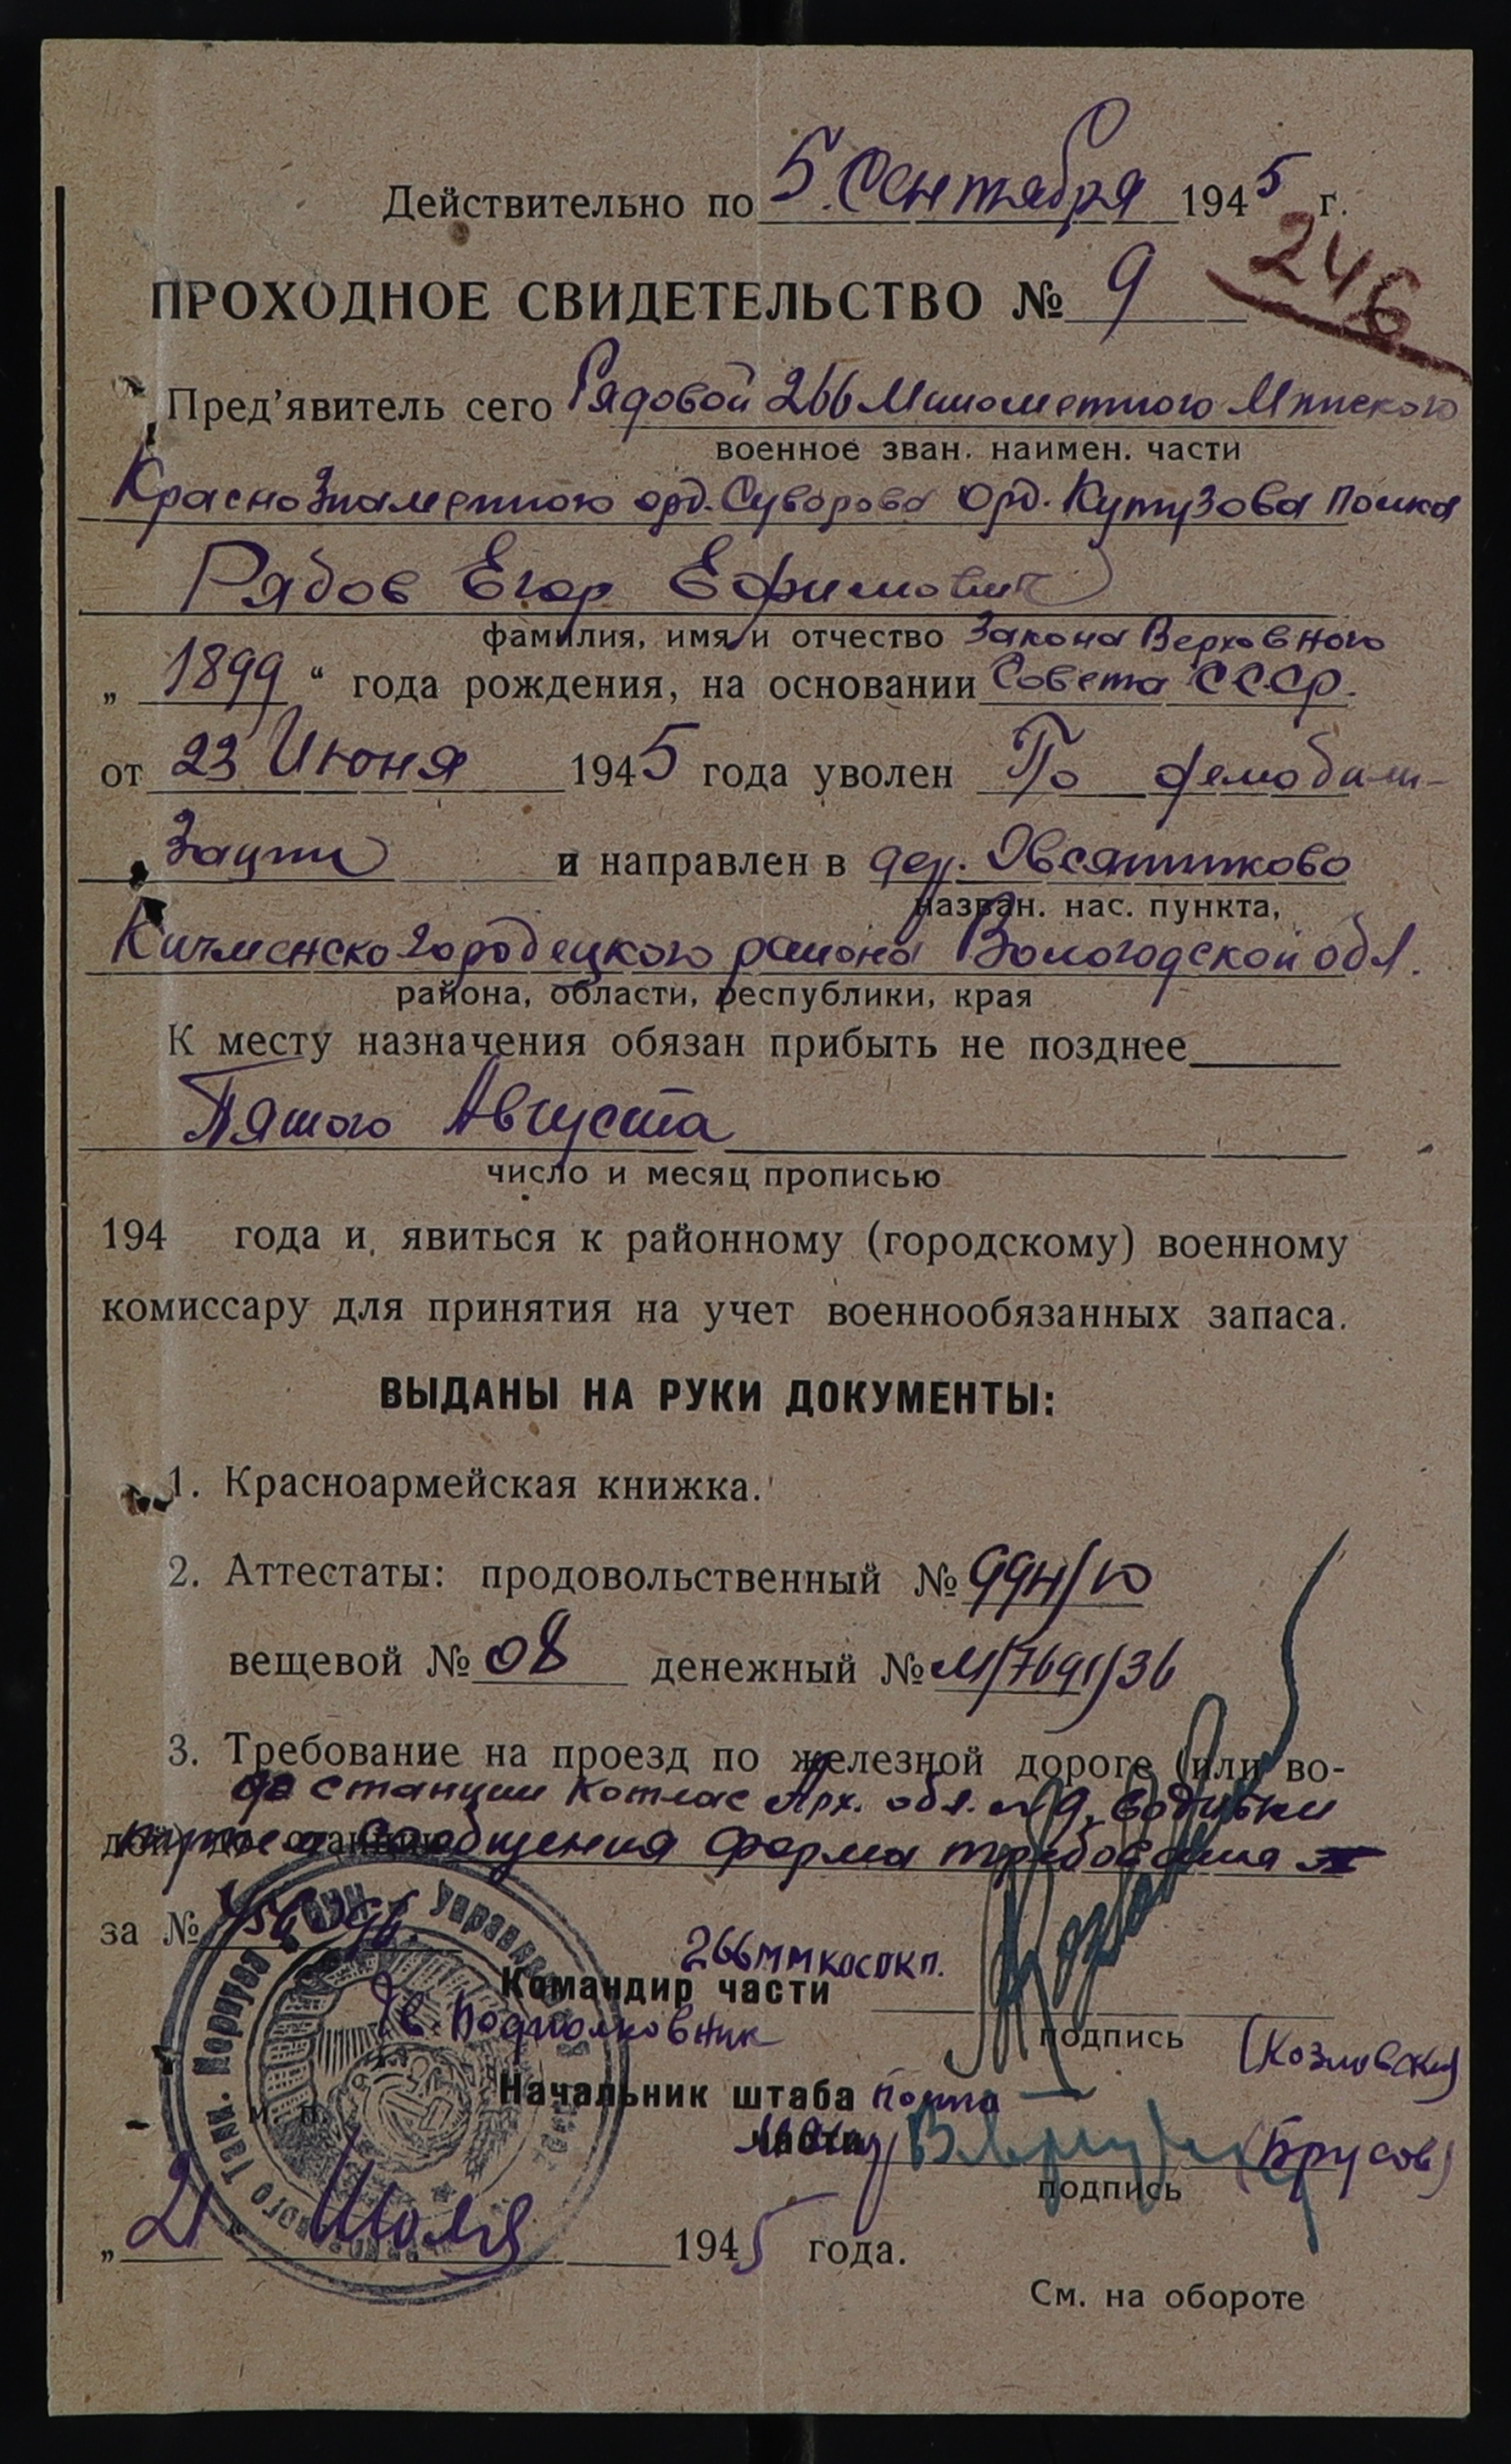 Действительно по 5. Сентября 1945 г.
246
ПРОХОДНОЕ СВИДЕТЕЛЬСТВО № 9
Пред’явитель сего Рядовой 266 Минометного Минского
военное зван. наимен. части
Краснознаменного орд. Суворова Орд. Кутузова Полка
Рябов Егор Ефимович
фамилия, имя и отчество Закона Верховного
„ 1899 “ года рождения, на основании Совета СССР.
от 23 Июня 1945 года уволен По демобили-
зации и направлен в дер. Овсянниково
назван. нас. пункта,
Кичменско Городецкого района Вологодской обл.
района, области, республики, края
К месту назначения обязан прибыть не позднее
Пятого Августа
число и месяц прописью
194 года и явиться к районному (городскому) военному
комиссару для принятия на учет военнообязанных запаса.
ВЫДАНЫ НА РУКИ ДОКУМЕНТЫ:
1. Красноармейская книжка.
2. Аттестаты: продовольственный №
вещевой № 08 денежный № М/7691/36
3. Требование на проезд по железной дороге (или во-
до станции Котлас Арх. обл.
дой) до станции сообщения форма требования
за №
266 ММКОСОКП.
Командир части
Гв. Подполковник
подпись (Козловский)
Начальник штаба полка
части Майор (Брусов)
подпись
м. п.
„ 2 “ Июля 1945 года.
См. на обороте